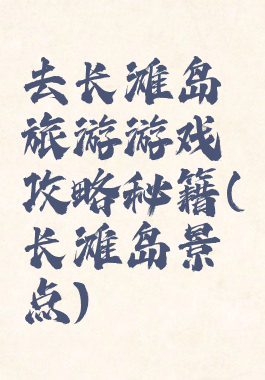 去长滩岛
旅游游戏
攻略秘籍(
长滩岛景
点)